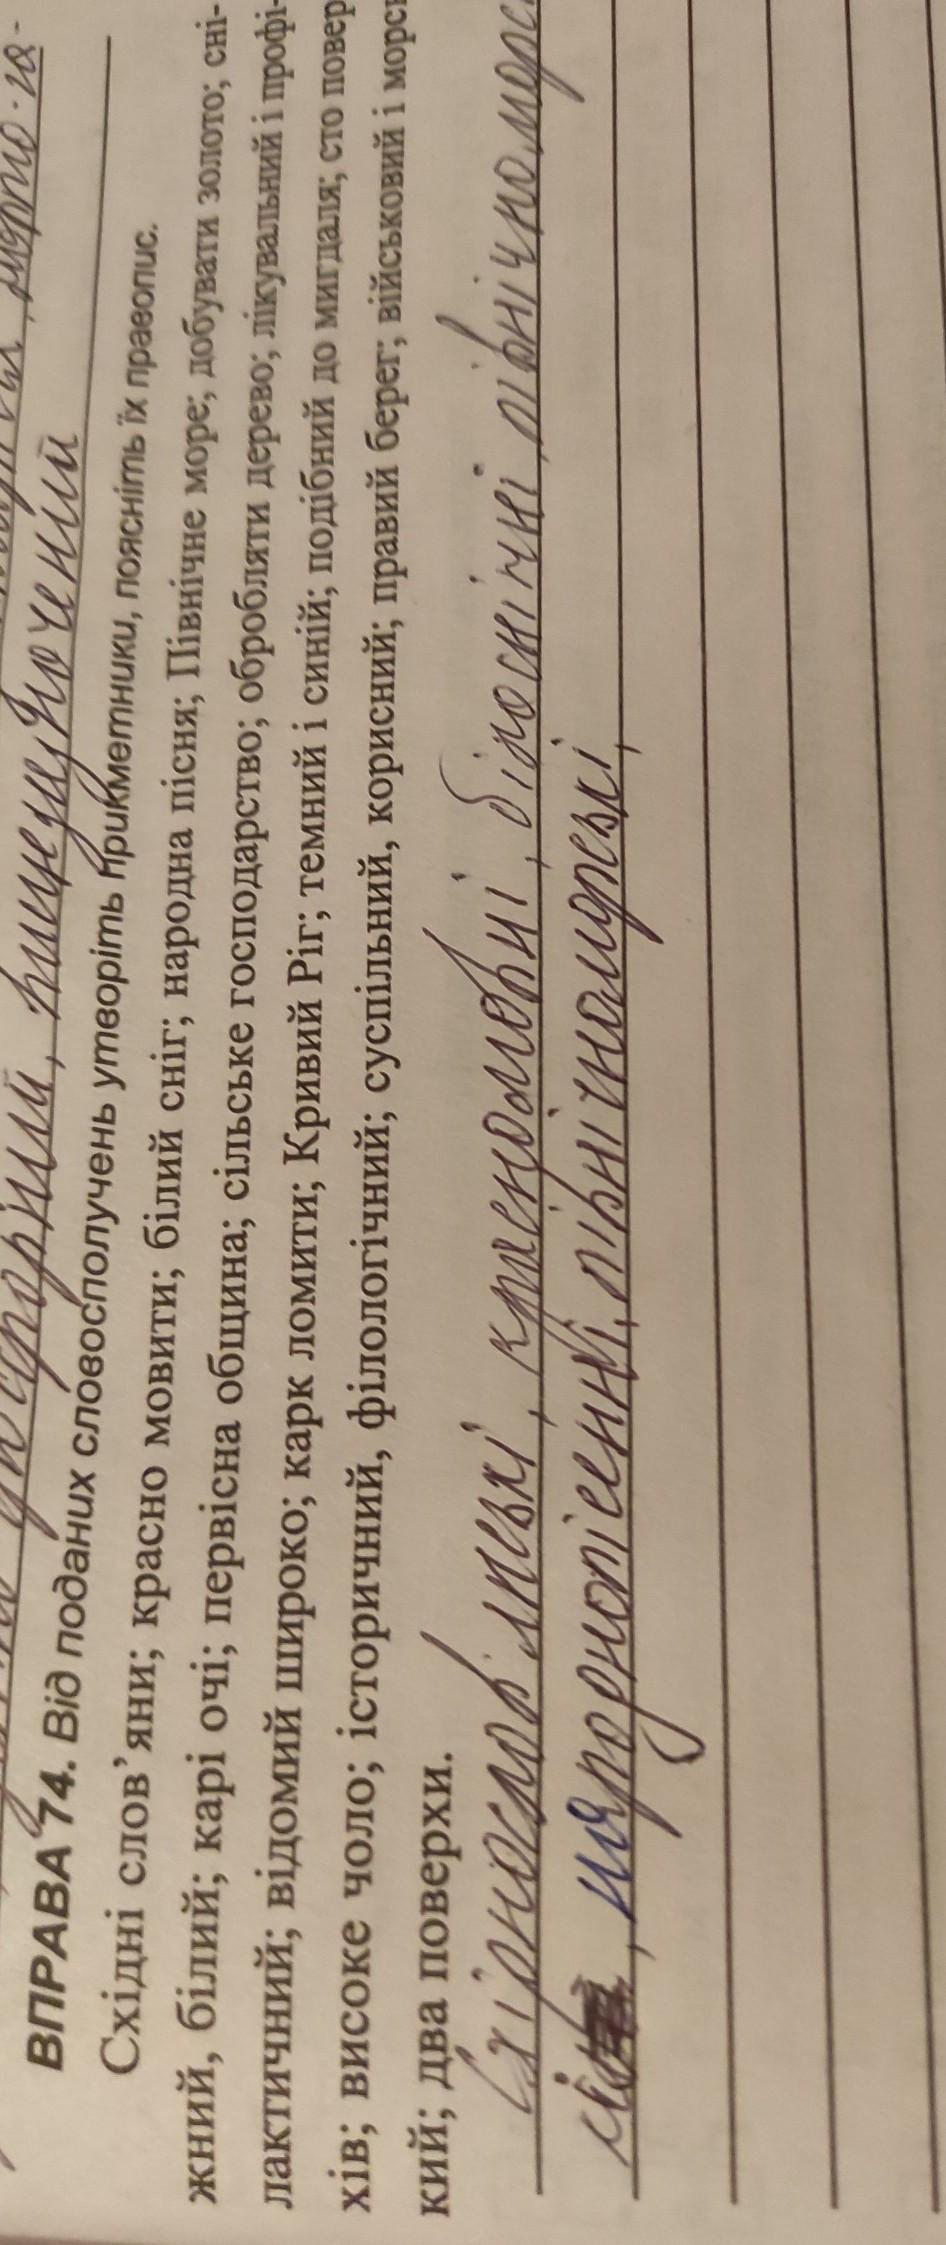 прищеплений
ВПРАВА 74. Від поданих словосполучень утворіть прикметники, поясніть їх правопис.
Східні слов’яни; красно мовити; білий сніг; народна пісня; Північне море; добувати золото; сні-
жний, білий; карі очі; первісна община; сільське господарство; обробляти дерево; лікувальний і профі-
лактичний; відомий широко; карк ломити; Кривий Ріг; темний і синій; подібний до мигдаля; сто повер
хів; високе чоло; історичний, філологічний; суспільний, корисний; правий берег; військовий і морсь
кий; два поверхи.
Східнослов'янські, красномовні, білосніжні, північноморс
кі, народнопісенні, північноморські,